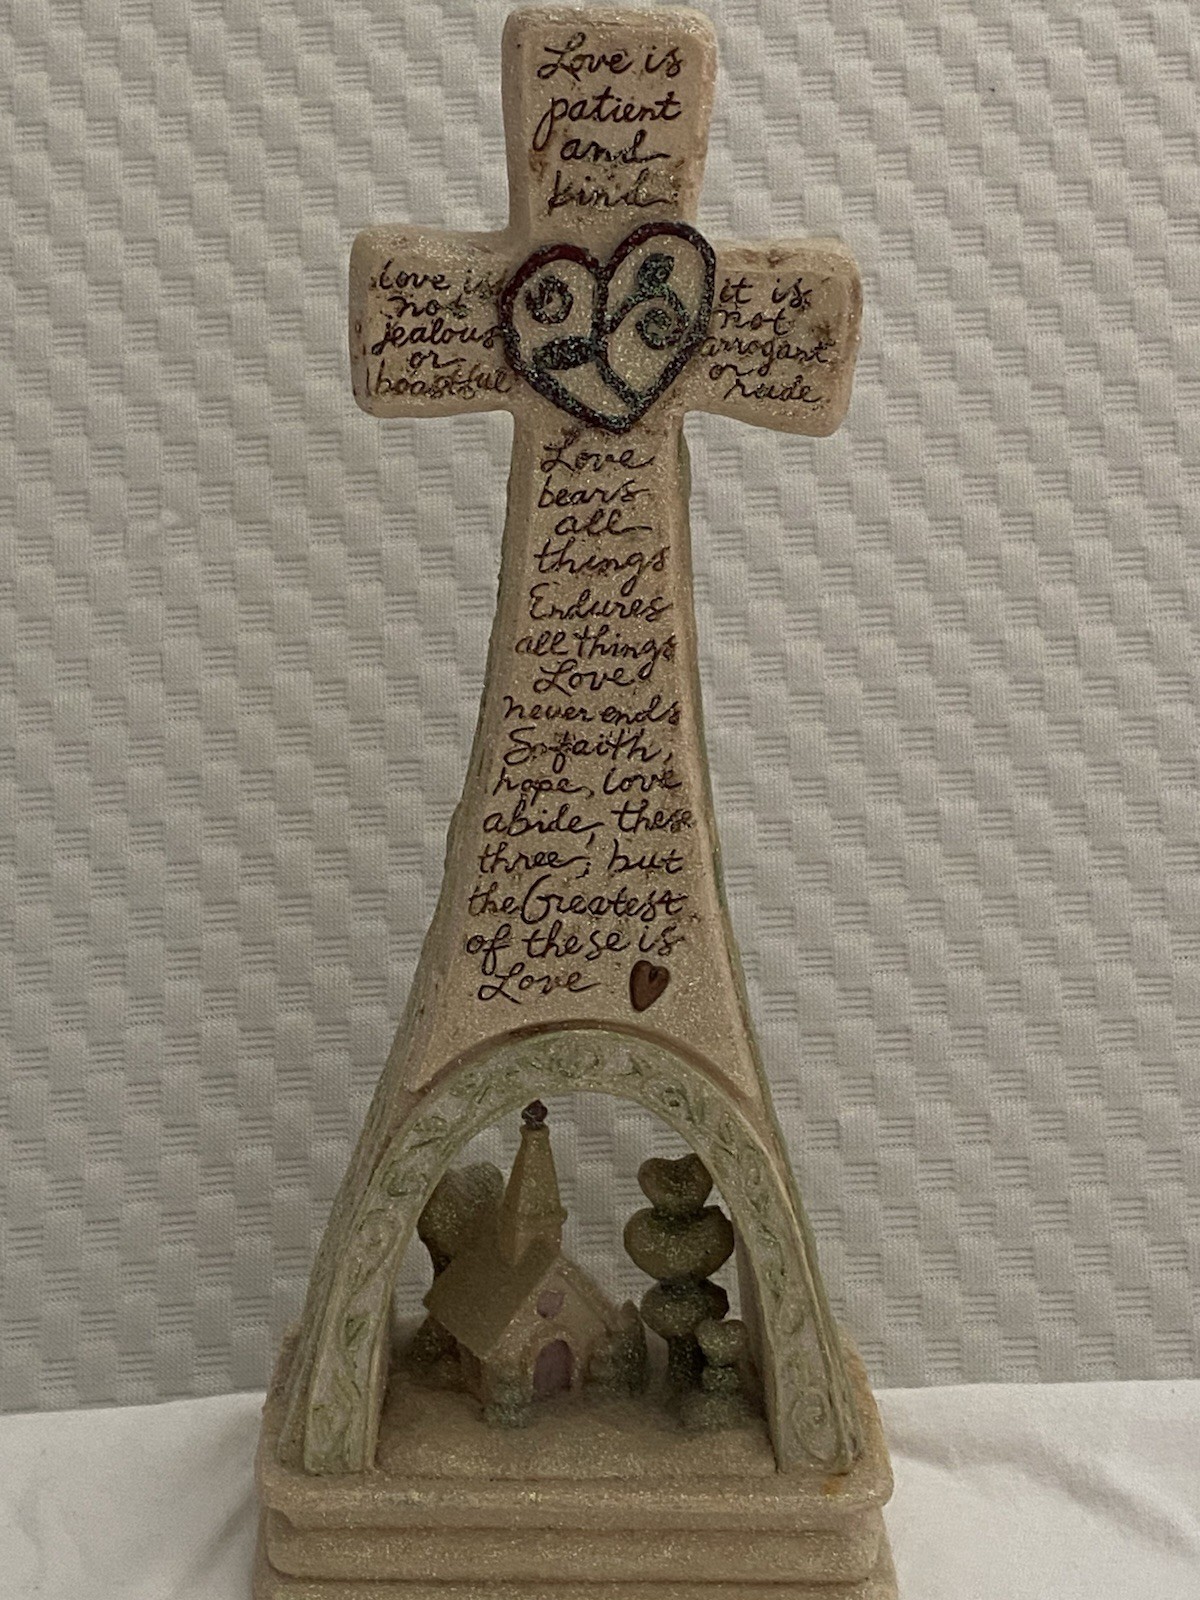 Love is
patient
and
kind
love is
not
jealous
or
boastful
it is
not
arrogant
or
rude
Love
bears
all
things
Endures
all things
Love
never ends
So faith,
hope, love
abide, these
three; but
the Greatest
of these is
Love